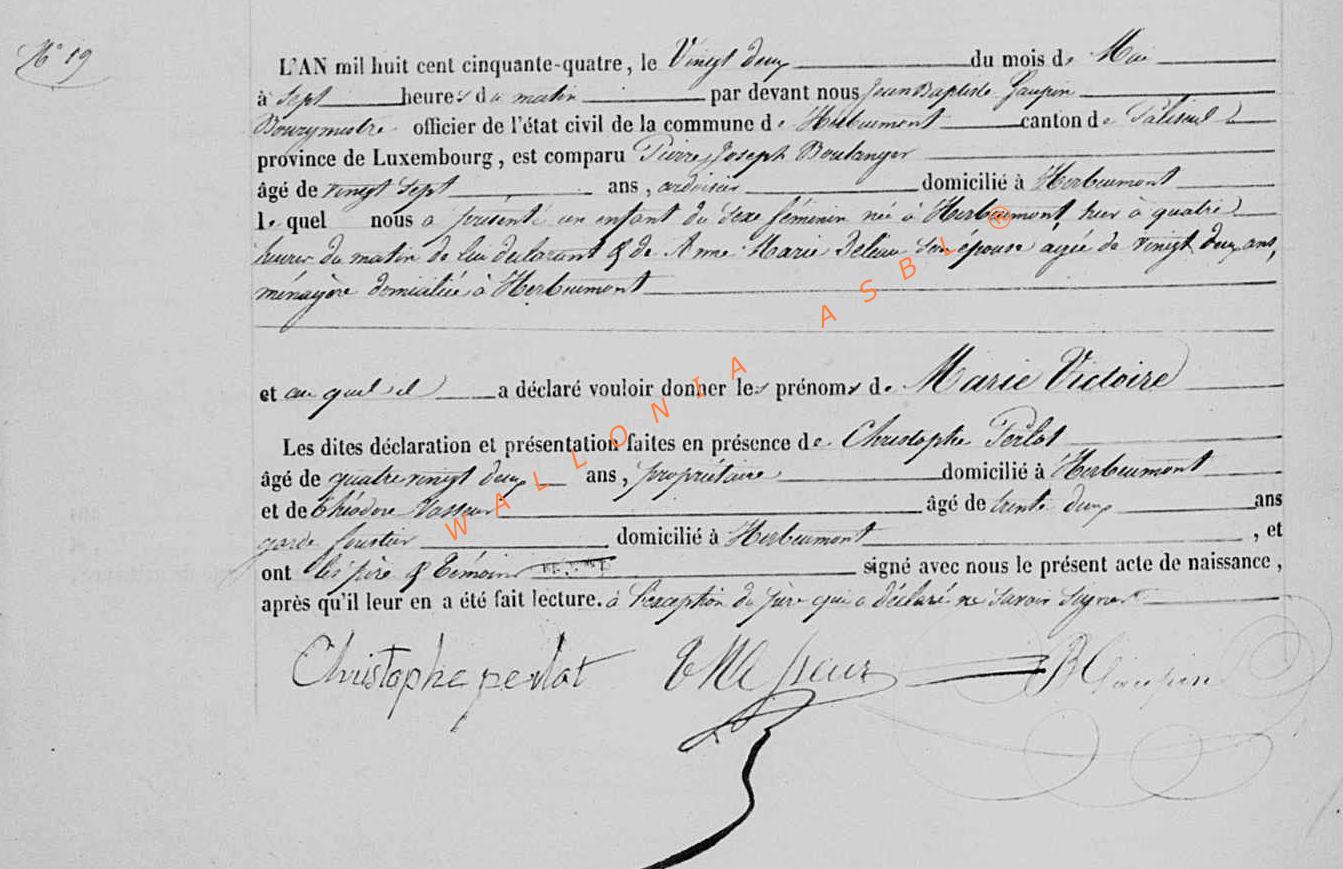 N° 19
L'AN mil huit cent cinquante-quatre, le Vingt deux du mois de Mai
à Sept heures du matin par devant nous Jean Baptiste Gaupin
Bourgmestre officier de l'état civil de la commune de Herbeumont canton de Paliseul
province de Luxembourg, est comparu Pierre Joseph Boulanger
âgé de vingt sept ans, ardoisier domicilié à Herbeumont
le quel nous a présenté un enfant du sexe féminin née à Herbeumont, hier à quatre
heures du matin de lui déclarant & de Anne Marie Deleau son épouse agée de vingt deux ans,
ménagère domiciliée à Herbeumont
et au quel il a déclaré vouloir donner les prénoms de Marie Victoire
Les dites déclaration et présentation faites en présence de Christophe Perlot
âgé de quatre vingt deux ans, propriétaire domicilié à Herbeumont
et de Théodore âgé de trente deux ans
garde forestier domicilié à Herbeumont, et
ont les père & témoins signé avec nous le présent acte de naissance,
après qu'il leur en a été fait lecture. à l'exception du père qui a déclaré ne savoir signer
Christophe perlot
JB Gaupin
WALLONIA ASBL ®